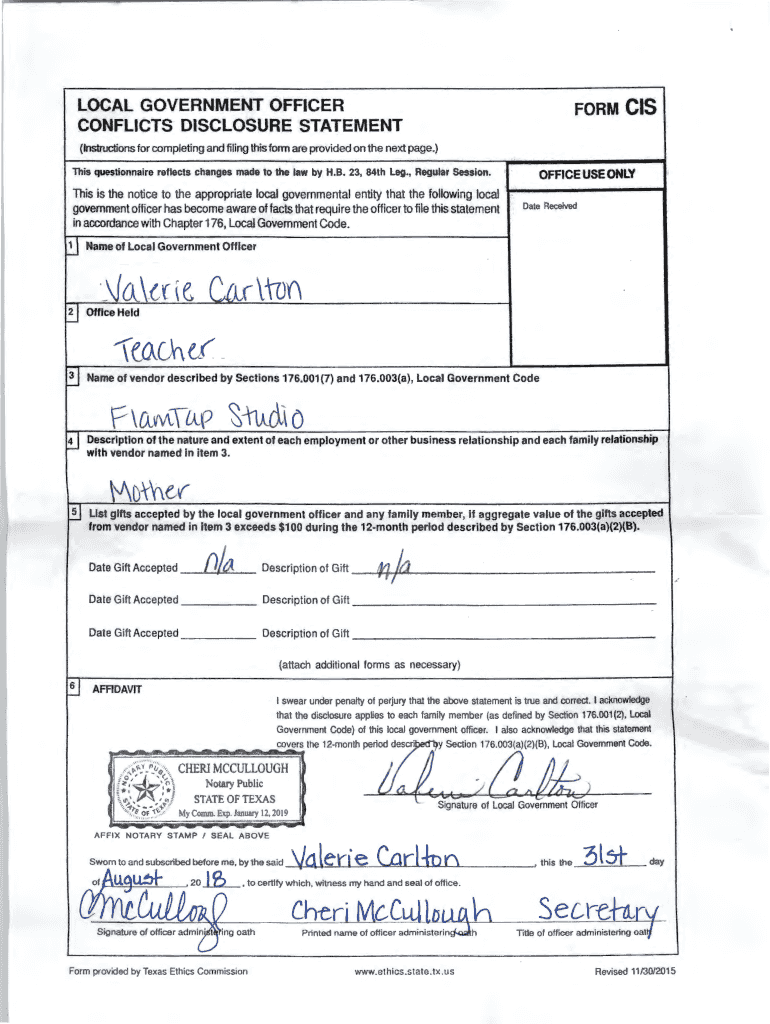 LOCAL GOVERNMENT OFFICER
CONFLICTS DISCLOSURE STATEMENT
FORM CIS
(Instructions for completing and filing this form are provided on the next page.)
This questionnaire reflects changes made to the law by H.B. 23, 84th Leg., Regular Session.
OFFICE USE ONLY
This is the notice to the appropriate local governmental entity that the following local
government officer has become aware of facts that require the officer to file this statement
in accordance with Chapter 176, Local Government Code.
Date Received
1 Name of Local Government Officer
Valerie Carlton
2 Office Held
Teacher
3 Name of vendor described by Sections 176.001(7) and 176.003(a), Local Government Code
FlamTap Studio
4 Description of the nature and extent of each employment or other business relationship and each family relationship
with vendor named in item 3.
Mother
5 List gifts accepted by the local government officer and any family member, if aggregate value of the gifts accepted
from vendor named in item 3 exceeds $100 during the 12-month period described by Section 176.003(a)(2)(B).
Date Gift Accepted n/a Description of Gift n/a
Date Gift Accepted Description of Gift
Date Gift Accepted Description of Gift
(attach additional forms as necessary)
6 AFFIDAVIT
I swear under penalty of perjury that the above statement is true and correct. I acknowledge
that the disclosure applies to each family member (as defined by Section 176.001(2), Local
Government Code) of this local government officer. I also acknowledge that this statement
covers the 12-month period described by Section 176.003(a)(2)(B), Local Government Code.
NOTARY PUBLIC
STATE OF TEXAS
CHERI MCCULLOUGH
Notary Public
STATE OF TEXAS
My Comm. Exp. January 12, 2019
Valerie Carlton
Signature of Local Government Officer
AFFIX NOTARY STAMP / SEAL ABOVE
Sworn to and subscribed before me, by the said Valerie Carlton, this the 31st day
of August, 20 18, to certify which, witness my hand and seal of office.
CMcCullough Cheri McCullough Secretary
Signature of officer administering oath Printed name of officer administering oath Title of officer administering oath
Form provided by Texas Ethics Commission www.ethics.state.tx.us Revised 11/30/2015